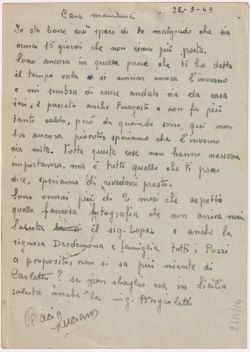 25-8-43
Cara mamma
Io sto bene così spero di te malgrado che sia
ormai 15 giorni che non ricevo più posta.
Sono ancora in questo paese che ti ho detto
il tempo vola e si avvicina ancora l'inverno
e mi sembra di essere andato via da casa
ieri, è passato anche Ferragosto e non fa più
tanto caldo, però da quando sono qui non
ha ancora piovuto speriamo che l'inverno
sia mite. Tutte queste cose non hanno nessuna
importanza, ma è tutto quello che ti posso
dire, speriamo di rivederci presto.
Sono ormai più di 2 mesi che aspetto
quella famosa fotografia che non arriva mai
saluta il sig. Lopez e anche la
signora Desdemona e famiglia tutti i Pozzi
a proposito non si sa più niente di
Carletto? se non sbaglio era in Sicilia
saluta anche la sig. Angioletti
Baci
Luciano